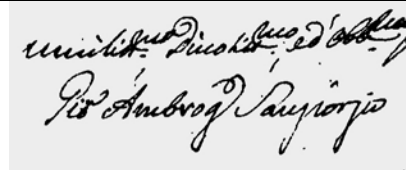 umilis.mo Divotis.mo ed obb.mo
Gio Ambrog.o Sangiorgio